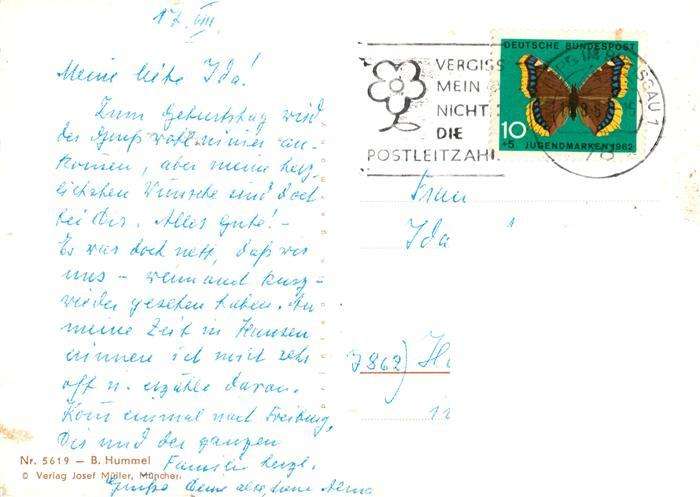 17. VIII.
Meine liebe Ida!
Zum Geburtstag wird
der Gruß wohl nimmer an-
kommen, aber meine herz-
lichsten Wünsche sind doch
bei Dir. Alles Gute! -
Es war doch nett, daß wir
uns - wenn auch kurz -
wieder gesehen haben. An
meine Zeit in Hausen
erinnere ich mich sehr
oft u. erzähle davon.
Komm einmal nach Freiburg,
Dir und der ganzen
Familie herzl.
Grüße Deine alte, 
Nr. 5619 - B. Hummel
© Verlag Josef Müller, München.
VERGISS
MEIN
NICHT
DIE
POSTLEITZAHL
DEUTSCHE BUNDESPOST
10
+5 JUGENDMARKEN 1962
Frau
Ida
7862) H